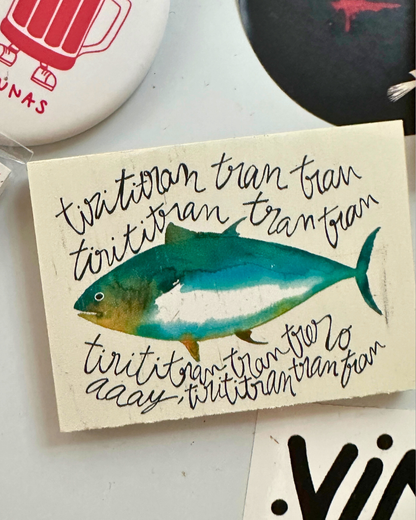 UNAS
tirititran tran tran
tirititran tran tran
tirititran tran trero
aaay, tirititrantrantran
.VIA